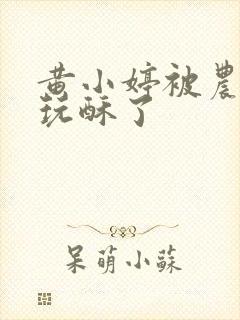 黄小婷被農
玩酥了
呆萌小蘇